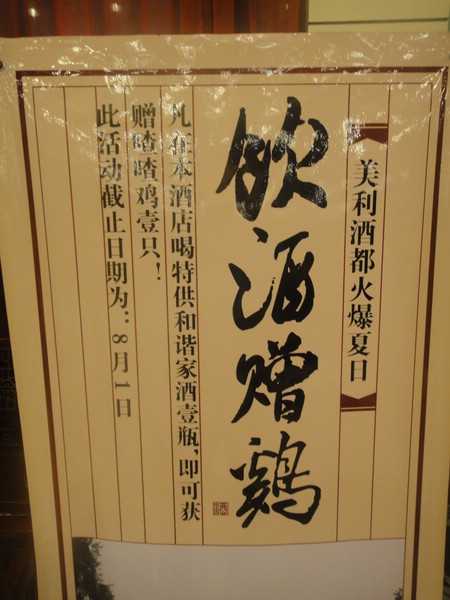 美利酒都火爆夏日
飲酒赠鷄
凡在本酒店喝特供和谐家酒壹瓶,即可获
赠喳喳鸡壹只!
此活动截止日期为:8月1日